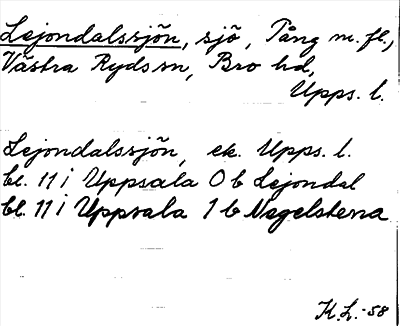 Lejondalssjön, sjö, Tång m. fl.,
Västra Ryds sn, Bro hd,
Upps. l.
Lejondalssjön, ek. Upps. l.
bl. 11 i Uppsala 0 b Lejondal
bl. 11 i Uppsala 1 b Nagelstena
K.L.-58